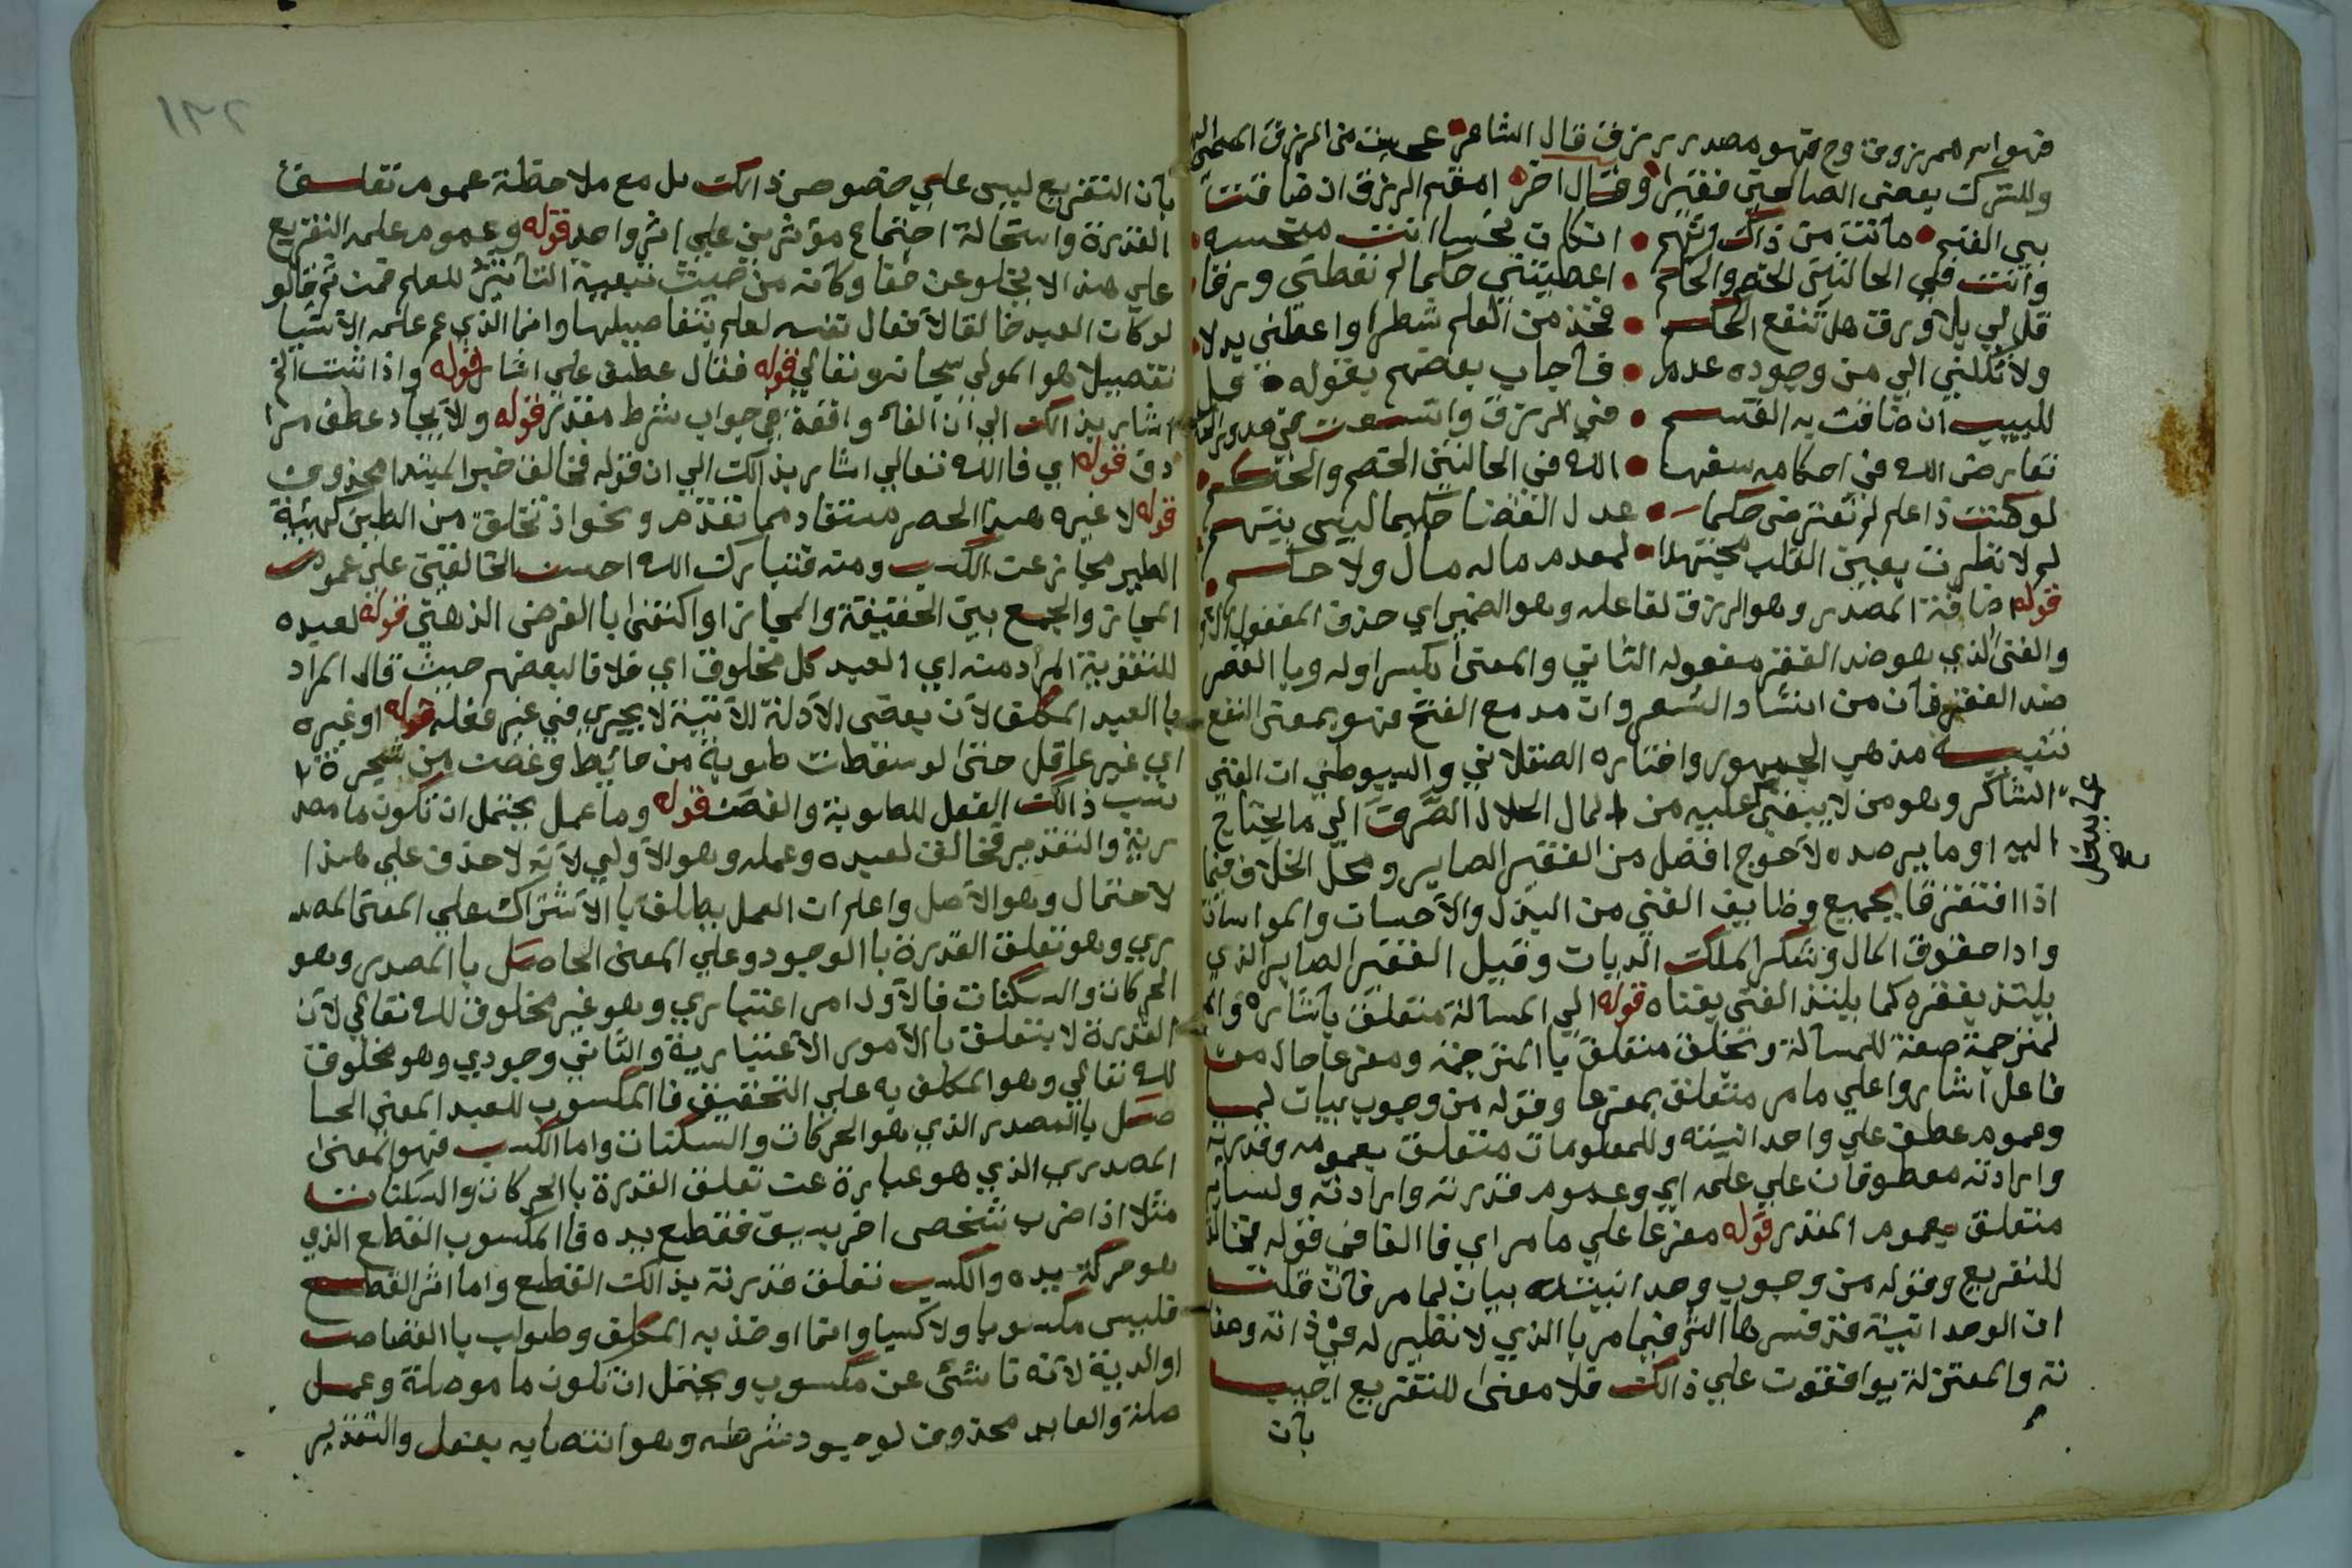 فهو اسم مرزوق وح فهو مصدر برزق قال الشاعر عجبت من الرزق المسيء
وللترك بعض الصالحين فقيرا وقال اخر امقسم الرزق ان ضاقت
بي القسم ما انت من ذاك متهم ان كان نحسا انت منحسه
وانت في الحالين الخصم والحكم اعطيتني حكما لم تعطني ورقا
قل لي بلا ورق هل تنفع الحكم فخذ من العلم شطرا واعطني بدلا
ولا تكلني الي من وجوده عدم فاجاب بعضهم بقوله قل
للبيب ان ضاقت به القسم في الرزق واتسعت في
تعارض الله في احكامه سفها الله في الحالين الخصم والحكم
لو كنت ذا علم لم تعترض حكما عدل القضا حكيما ليس يتهم
لم لا نظرت بعين القلب مجتهدا لمعدم ما له مال ولا حكم
قوله اضافة المصدر وهو الرزق لفاعله وهو الضمير اي حذف المفعول الاول
والغنى الذي هو ضد الفقر مفعوله الثاني والمعنى بكسر اوله وبا القصر
ضد الفقر فان من انشاد الشعر وان مد مع الفتح فهو بمعنى النفع
تنبيه مذهب الجمهور واختاره العسقلاني والسيوطي ان الغني
الشاكر وهو من لا يبقى عليه من المال الحلال الصرف الي ما يحتاج
اليه او ما يرصده لاحوج افضل من الفقير الصابر ومحل الخلاف فيما
اذا افتقر قا بجميع وظايف الغني من البذل والاحسان والمواسات
وادا حقوق المال وشكر الملك الديان وقيل الفقير الصابر الذي
يلتذ بفقره كما يلتذ الغني بغناه قوله الي المسالة متعلق باشاره والم
لمترجمة صفة للمسالة وبخلق متعلق با المترجمة ومفرعا حال من
فاعل اشار وعلي ما مر متعلق بمفرعا وقوله من وجوب بيان لما
وعموم عطف علي واحدانيته وللمعلومات متعلق بعمومه وقدرته
وارادته معطوفان علي علمه اي وعموم قدرته وارادته ولساير
متعلق بعموم المقدر قوله مفرعا علي ما مر اي فا الفا في قوله فخالق
للتفريع وقوله من وجوب وحدانيته بيان لما مر فان قلت
ان الوحدانية قد فسرها الش فيما مر با الذي لا نظير له في ذاته وصفا
ته والمعتزلة يوافقون علي ذالك فلا معنى للتفريع اجيب
بان
بان التفريع ليس علي خصوص ذالك بل مع ملاحظة عموم تعلق
القدرة واستحالة اجتماع مؤثرين علي اثر واحد قوله وعموم علمه التفريع
علي هذا لا يخلو عن خفا وكانه من حيث تبعية التاثير للعلم فمن ثم قالو
لو كان العبد خالقا لافعال نفسه لعلم بتفاصيلها وانما الذي عم علمه الاشيا
تفصيلا هو المولي سبحانه وتعالي قوله فقال عطف علي اشار قوله واذا ثبت الخ
اشار بذالك الي ان الفا واقعة في جواب شرط مقدر قوله ولايجاد عطف مرا
دف قوله اي فا الله تعالي اشار بذالك الي ان قوله فخالق خبر المبتدا محذوف
قوله لا غيره هذا الحصر مستفاد مما تقدم ونحو اذ تخلق من الطين كهيئة
الطير مجاز عن الكسب ومنه فتبارك الله احسن الخالقين علي عموم
المجاز والجمع بين الحقيقة والمجاز او اكتفى با الفرض الذهني قوله لعبده
للتقوية المراد منه اي العبد كل مخلوق اي خلافا لبعضهم حيث قال المراد
با العبد المكلف لان بعض الادلة الاتية لا يجري في غير فعله قوله او غيره
اي غير عاقل حتى لو سقطت طوبة من حائيط وغصن من شجرة
نسب ذالك الفعل للطوبة والغصن قوله وما عمل يحتمل ان تكون ما مصد
رية والتقدير فخالق لعبده وعمله وهو الاولي لانه لا حذف علي هذا
لاحتمال وهو الاصل واعلم ان العمل يطلق با الاشتراك علي المعنى المصد
ري وهو تعلق القدرة با الوجود وعلي المعنى الحاصل با المصدر وهو
الحركات والسكنات فالاول امر اعتباري وهو غير مخلوق لله تعالي لان
القدرة لا يتعلق با الامور الاعتبارية والثاني وجودي وهو مخلوق
لله تعالي وهو المكلف به علي التحقيق فا المكسوب للعبد المعنى الحا
صل با المصدر الذي هو الحركات والسكنات واما الكسب فهو المعنى
المصدري الذي هو عبارة عن تعلق القدرة با الحركات والسكنات
مثلا اذا ضرب شخص اخر بسيف فقطع يده فا المكسوب القطع الذي
هو حركة يده والكسب تعلق قدرته بذالك القطع واما اثر القطع
فليس مكسوبا ولا كسبا وانما اوخذ به المكلف وطولب با القصاص
او الدية لانه ناشئ عن مكسوب ويحتمل ان تكون ما موصلة وعمل
صلة والعايد محذوف لوجود شرطه وهو انتصابه بفعل والتقدير